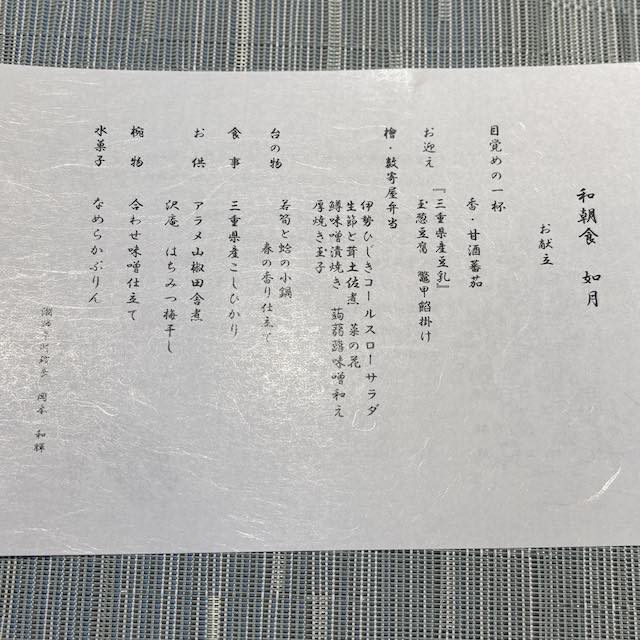 和朝食　如月
お献立
目覚めの一杯
香・甘酒蕃茄
お迎え　『三重県産豆乳』
玉葱豆腐　鼈甲餡掛け
檜・数寄屋弁当
伊勢ひじきコールスローサラダ
生節と茸土佐煮　菜の花
鱒味噌漬焼き　蒟蒻蕗味噌和え
厚焼き玉子
台の物　若筍と蛤の小鍋
春の香り仕立て
食事　三重県産こしひかり
お供　アラメ山椒田舎煮
沢庵　はちみつ梅干し
椀物　合わせ味噌仕立て
水菓子　なめらかぷりん
和輝